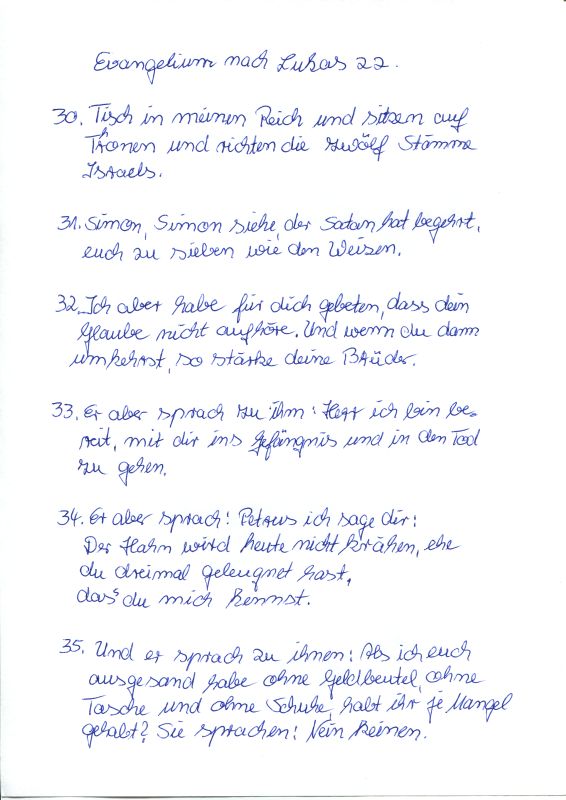 Evangelium nach Lukas 22.
30. Tisch in meinen Reich und sitzen auf
Thronen und richten die zwölf Stämme
Israels.
31. Simon, Simon siehe, der Satan hat begehrt,
euch zu sieben wie den Weizen.
32. Ich aber habe für dich gebeten, dass dein
Glaube nicht aufhöre. Und wenn du dann
umkehrst, so stärke deine Brüder.
33. Er aber sprach zu ihm: Herr ich bin be-
reit, mit dir ins Gefängnis und in den Tod
zu gehen.
34. Er aber sprach: Petrus ich sage dir:
Der Hahn wird heute nicht krähen, ehe
du dreimal geleugnet hast,
dass du mich kennst.
35. Und er sprach zu ihnen: Als ich euch
ausgesand habe ohne Geldbeutel, ohne
Tasche und ohne Schuhe, habt ihr je Mangel
gehabt? Sie sprachen: Nein keinen.